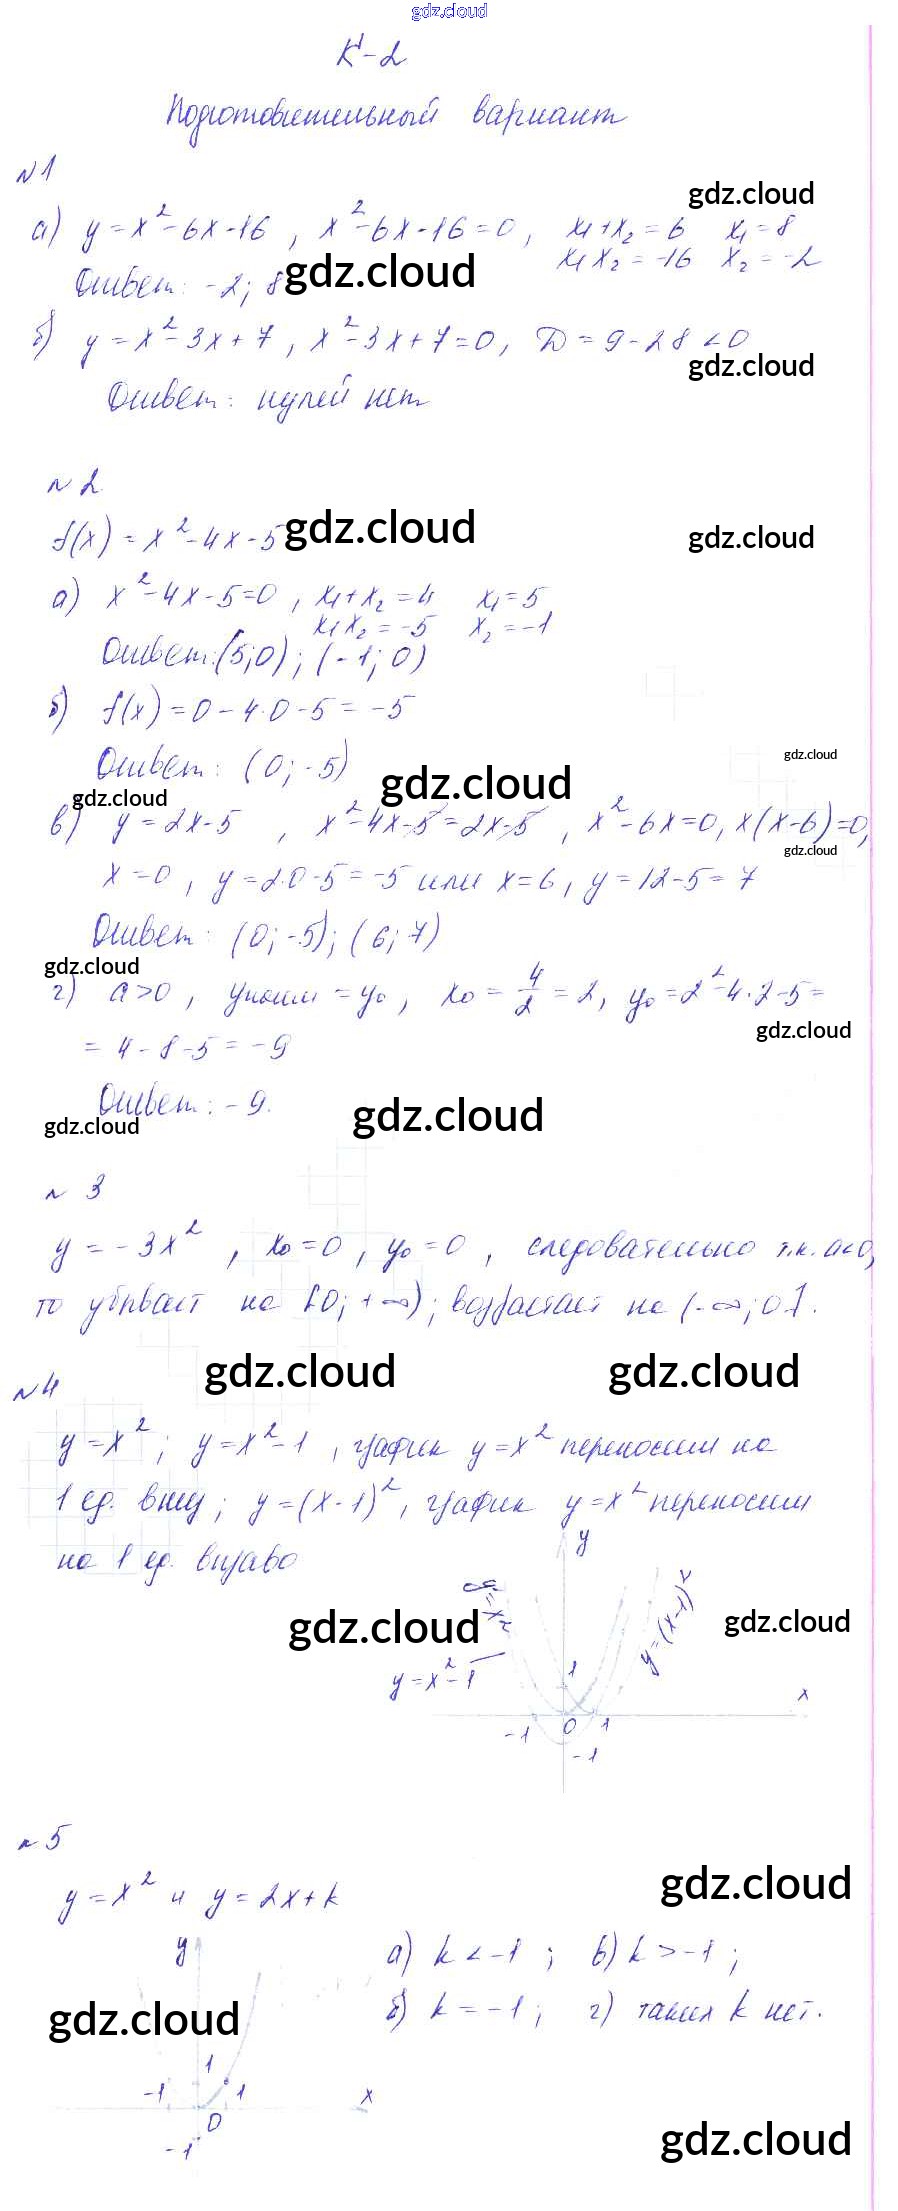 gdz.cloud
К-2
Подготовительный вариант
№1
gdz.cloud
а) y = x² - 6x - 16 , x² - 6x - 16 = 0 , x₁ + x₂ = 6 x₁ = 8
x₁x₂ = -16 x₂ = -2
Ответ: -2; 8
gdz.cloud
б) y = x² - 3x + 7 , x² - 3x + 7 = 0 , D = 9 - 28 < 0
gdz.cloud
Ответ: нулей нет
№2
f(x) = x² - 4x - 5
gdz.cloud
gdz.cloud
а) x² - 4x - 5 = 0 , x₁ + x₂ = 4 x₁ = 5
x₁x₂ = -5 x₂ = -1
Ответ: (5; 0) ; (-1; 0)
б) f(x) = 0 - 4·0 - 5 = -5
gdz.cloud
Ответ: (0; -5)
gdz.cloud
gdz.cloud
в) y = 2x - 5 , x² - 4x - 5 = 2x - 5 , x² - 6x = 0, x(x-6) = 0,
gdz.cloud
x = 0 , y = 2·0 - 5 = -5 или x = 6 , y = 12 - 5 = 7
Ответ: (0; -5); (6; 7)
gdz.cloud
г) a > 0 , yнаим = y₀ , x₀ = 4/2 = 2, y₀ = 2² - 4·2 - 5 =
gdz.cloud
= 4 - 8 - 5 = -9
Ответ: -9.
gdz.cloud
gdz.cloud
№ 3
y = -3x² , x₀ = 0 , y₀ = 0 , следовательно т.к. a<0,
то убывает на [0; +∞) ; возрастает на (-∞; 0].
gdz.cloud
gdz.cloud
№4
y = x² ; y = x² - 1 , график y = x² переносим на
1 ед. вниз ; y = (x - 1)² , график y = x² переносим
на 1 ед. вправо
y
y = x²
gdz.cloud
y = (x-1)²
gdz.cloud
y = x² - 1
1
x
-1
0
1
-1
№5
y = x² и y = 2x + k
gdz.cloud
y
а) k < -1 ; в) k > -1 ;
б) k = -1 ; г) таких k нет.
gdz.cloud
1
-1
1
x
0
-1
gdz.cloud